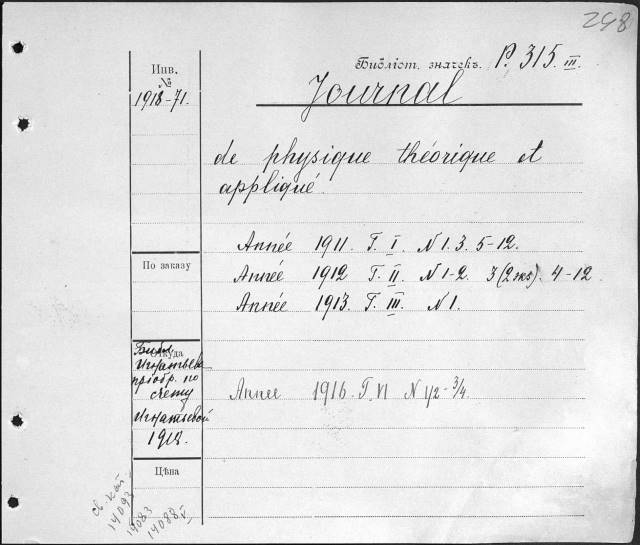 298
Библіот. значекъ. P. 315. III.
Инв.
№
1918-71.
Journal
de physique théorique et
appliqué.
Année 1911. T. I. N 1. 3. 5-12.
По заказу
Année 1912 T. II. N 1-2. 3 (2 экз). 4-12
Année 1913. T. III. N 1.
Откуда
Библ.
Игнатьева
пріобр. по
счету
Игнатьевой
1918.
Année 1916. T. VI N 1/2 - 3/4.
Цѣна
14093
14083
14088